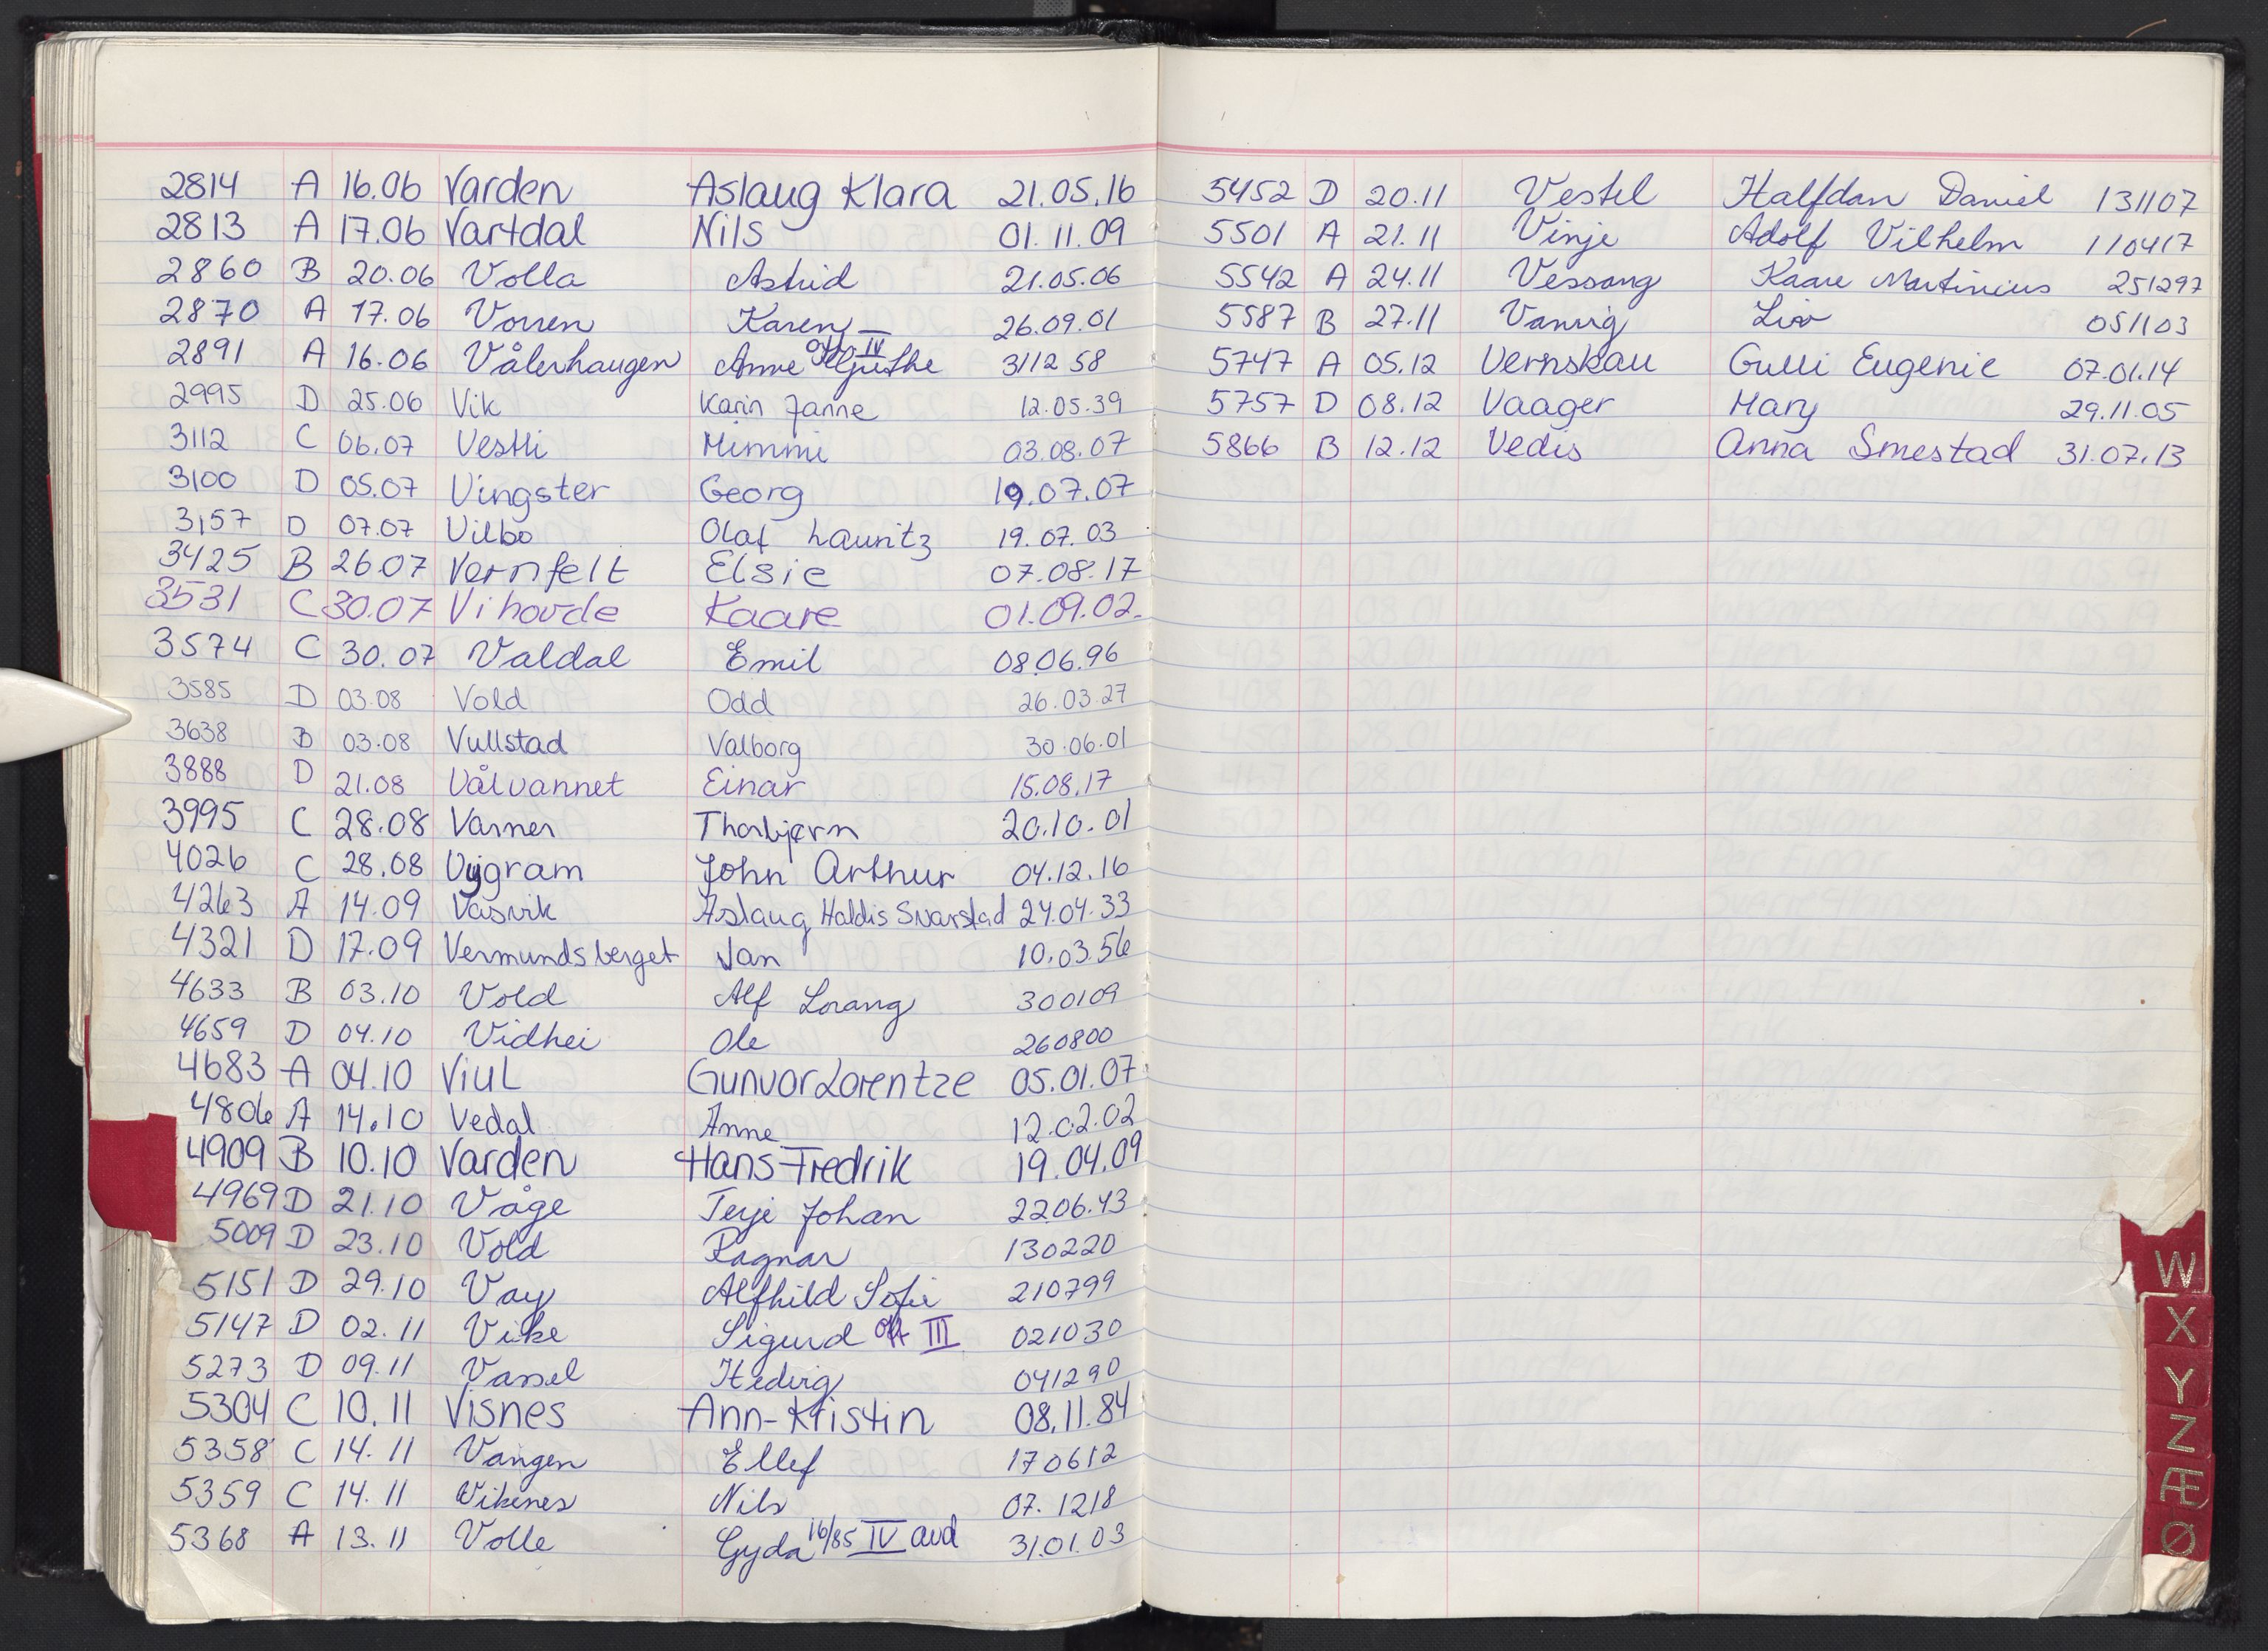 2814 A 16.06 Varden Aslaug Klara 21.05.16
2813 A 17.06 Vartdal Nils 01.11.09
2860 B 20.06 Volla Astrid 21.05.06
2870 A 17.06 Vorren Karen 26.09.01
2891 A 16.06 Vålerhaugen Anne Grethe IV 311258
2995 D 25.06 Vik Karin Janne 12.05.39
3112 C 06.07 Vestli Mimmi 03.08.07
3100 D 05.07 Vingster Georg 19.07.07
3157 D 07.07 Vilbo Olaf Lauritz 19.07.03
3425 B 26.07 Vernfelt Elsie 07.08.17
3531 C 30.07 Vihovde Kaare 01.09.02.
3574 C 30.07 Valdal Emil 08.06.96
3585 D 03.08 Vold Odd 26.03.27
3638 B 03.08 Vullstad Valborg 30.06.01
3888 D 21.08 Vålvannet Einar 15.08.17
3995 C 28.08 Varner Thorbjørn 20.10.01
4026 C 28.08 Vygram John Arthur 04.12.16
4263 A 14.09 Vasvik Aslaug Haldis Svarstad 24.04.33
4321 D 17.09 Vermundsberget Jan 10.03.56
4633 B 03.10 Vold Alf Lorang 300109
4659 D 04.10 Vidhei Ole 260800
4683 A 04.10 Viul Gunvor Lorentze 05.01.07
4806 A 14.10 Vedal Anne 12.02.02
4909 B 10.10 Varden Hans Fredrik 19.04.09
4969 D 21.10 Våge Terje Johan 2206.43
5009 D 23.10 Vold Ragnar 130220
5151 D 29.10 Vay Alfhild Sofie 210799
5147 D 02.11 Vike Sigurd III 021030
5273 D 09.11 Vassel Hedvig 041290
5304 C 10.11 Visnes Ann-Kristin 08.11.84
5358 C 14.11 Vangen Ellef 170612
5359 C 14.11 Vikenes Nils 07.1218
5368 A 13.11 Volle Gyda 16/85 IV avd 31.01.03
5452 D 20.11 Vestel Halfdan Daniel 131107
5501 A 21.11 Vinje Adolf Vilhelm 110417
5542 A 24.11 Vessang Kaare Martinius 251297
5587 B 27.11 Vanvig Liv 051103
5747 A 05.12 Vernskau Gulli Eugenie 07.01.14
5757 D 08.12 Vaager Mary 29.11.05
5866 B 12.12 Vedis Anna Smestad 31.07.13
W
X
Y
Z
Æ
Ø